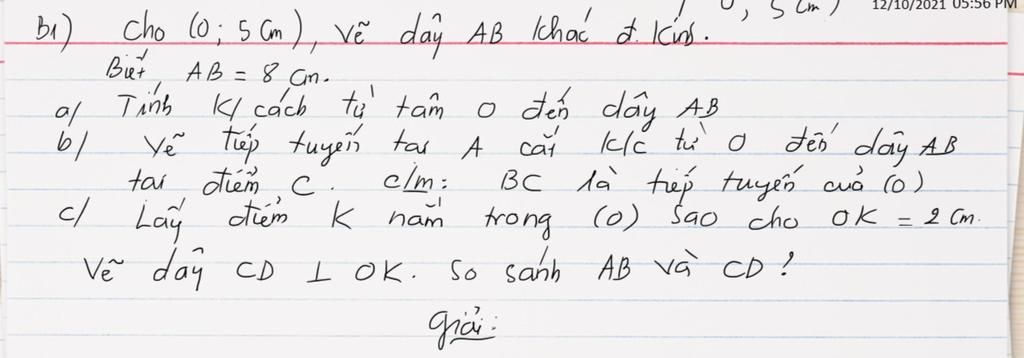 0; 5 Cm) 12/10/2021 05:56 PM
B1) Cho (0; 5 Cm), Vẽ dây AB khác đ. kính.
Biết, AB = 8 Cm.
a/ Tính K/cách từ tâm O đến dây AB
b/ Vẽ tiếp tuyến tại A cắt k/c từ O đến dây AB
tại điểm C. c/m: BC là tiếp tuyến của (0)
c/ Lấy điểm K nằm trong (0) Sao cho OK = 2 Cm.
Vẽ dây CD ⊥ OK. So sánh AB và CD?
Giải: